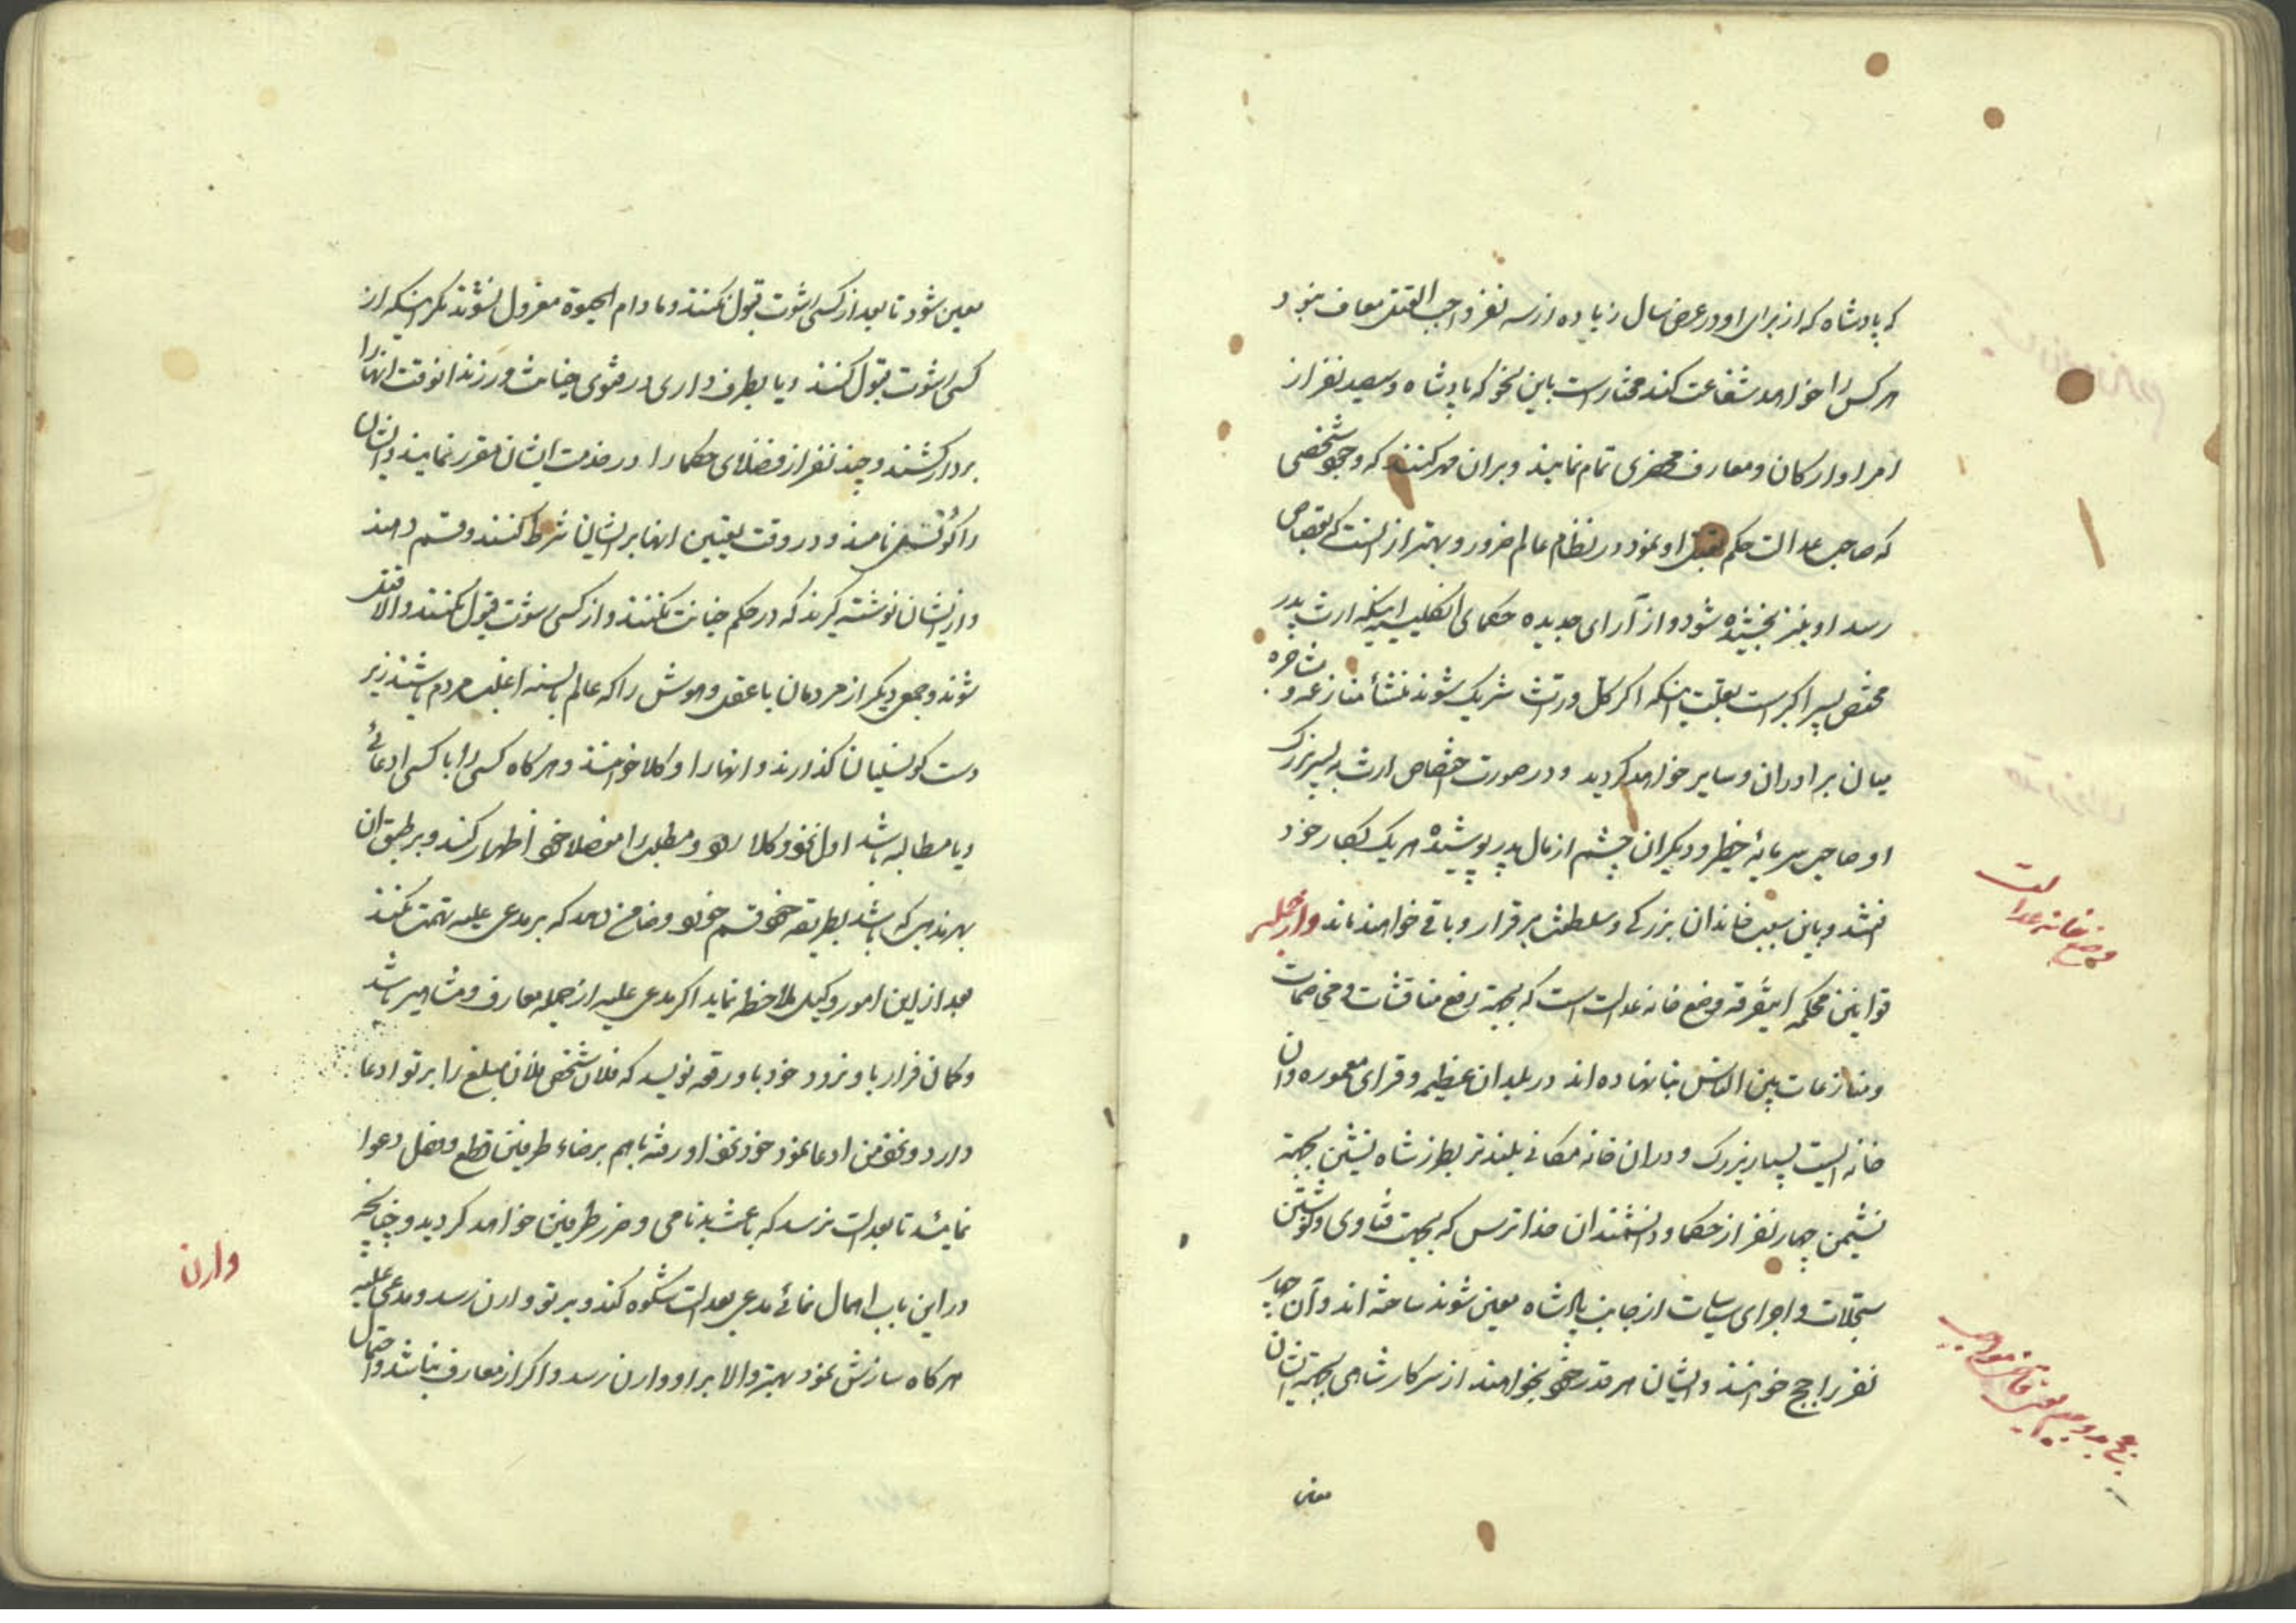 که پادشاه که از برای او در عرض سال زیاده از سه نفر واجب القتل معاف نبود
هر کس را خواهد شفاعت کند مختار است باین نحو که پادشاه و سیصد نفر از
امرا و ارکان و معارف محضری تمام نمایند و بران مهر کنند که وجود شخصی
که صاحب عدالت حکم بقتل او نمود در نظام عالم ضرور و بهتر از انست که بقصاص
رسد او نیز بخشیده شود و از آرای جدیده حکمای انگلیسیه اینکه ارث پدر
مختص پسر اکبر است بعلت اینکه اگر کل ورثه شریک شوند منشأ منازعه و مشاجره
میان برادران و سایر خواهد گردید و در صورت اختصاص ارث به پسر بزرگ
او صاحب سرمایه خطیر و دیگران چشم از مال پدر پوشیده هر یک بکار خود
افتند و باین سبب خاندان بزرگی و سلطنت برقرار و باقی خواهند ماند و از جمله
قوانین محکمه این فرقه وضع خانه عدالت است که بجهة رفع مناقشات و مخاصمات
و منازعات بین الناس بنا نهاده اند در بلدان عظیمه و قرای معموره و آن
خانه ایست بسیار بزرگ و دران خانه مکانی بلندتر بطرز شاه نشین بجهة
نشیمن چهار نفر از حکما و دانشمندان خداترس که بجهت فتاوی و نوشتن
سجلات و اجرای سیاسات از جانب پادشاه معین شوند ساخته اند و آن چهار
نفر را جج خوانند و ایشان هر قدر خرج بخواهند از سرکار شاهی بجهة ایشان
معین
وضع خانه عدالت
معین شود تا بعد از کسی رشوت قبول نکنند و ما دام الحیوة معزول نشوند مگر اینکه از
کسی رشوت قبول کنند و یا بطرف داری در فتوی خیانت ورزند انوقت انها را
بردار کشند و چند نفر از فضلای حکما را در خدمت ایشان مقرر نمایند و ایشان
را کونسلی نامند و در وقت تعیین انها بر ایشان شرط کنند و قسم دهند
و از ایشان نوشته گیرند که در حکم خیانت نکنند و از کسی رشوت قبول نکنند و الا قتل
شوند و جمعی دیگر از مردمان با عقل و هوش را که عالم بالسنه اغلب مردم باشند زیر
دست کونسلیان گذارند و انها را وکلا خوانند و هر گاه کسی را با کسی ادعائی
و یا مطالبه باشد اول نزد وکلا رود و مطلب را مفصلا خود اظهار کند و بر طبق ان
بهر مذهب که باشد بطریقه خود قسم خورد و ضامن دهد که بر مدعی علیه تهمت نکند
بعد از این امور وکیل ملاحظه نماید اگر مدعی علیه از جمله معارف و مشاهیر باشد
و گمان فرار باو نرود خود باو رقعه نویسد که فلان شخص فلان مبلغ را بر تو ادعا
دارد و نزد من ادعا نمود خود نزد او رفته باهم برضاء طرفین قطع و فصل دعوا
نمایند تا بعدالت نرسد که باعث بدنامی و ضرر طرفین خواهد گردید و چنانچه
در این باب اهمال نمائی مدعی بعدالت شکوه کند و بر تو وارن رسد و مدعی علیه
هر گاه سازش نمود بهتر و الا بر او وارن رسد و اگر از معارف نباشد و احتمال
وارن